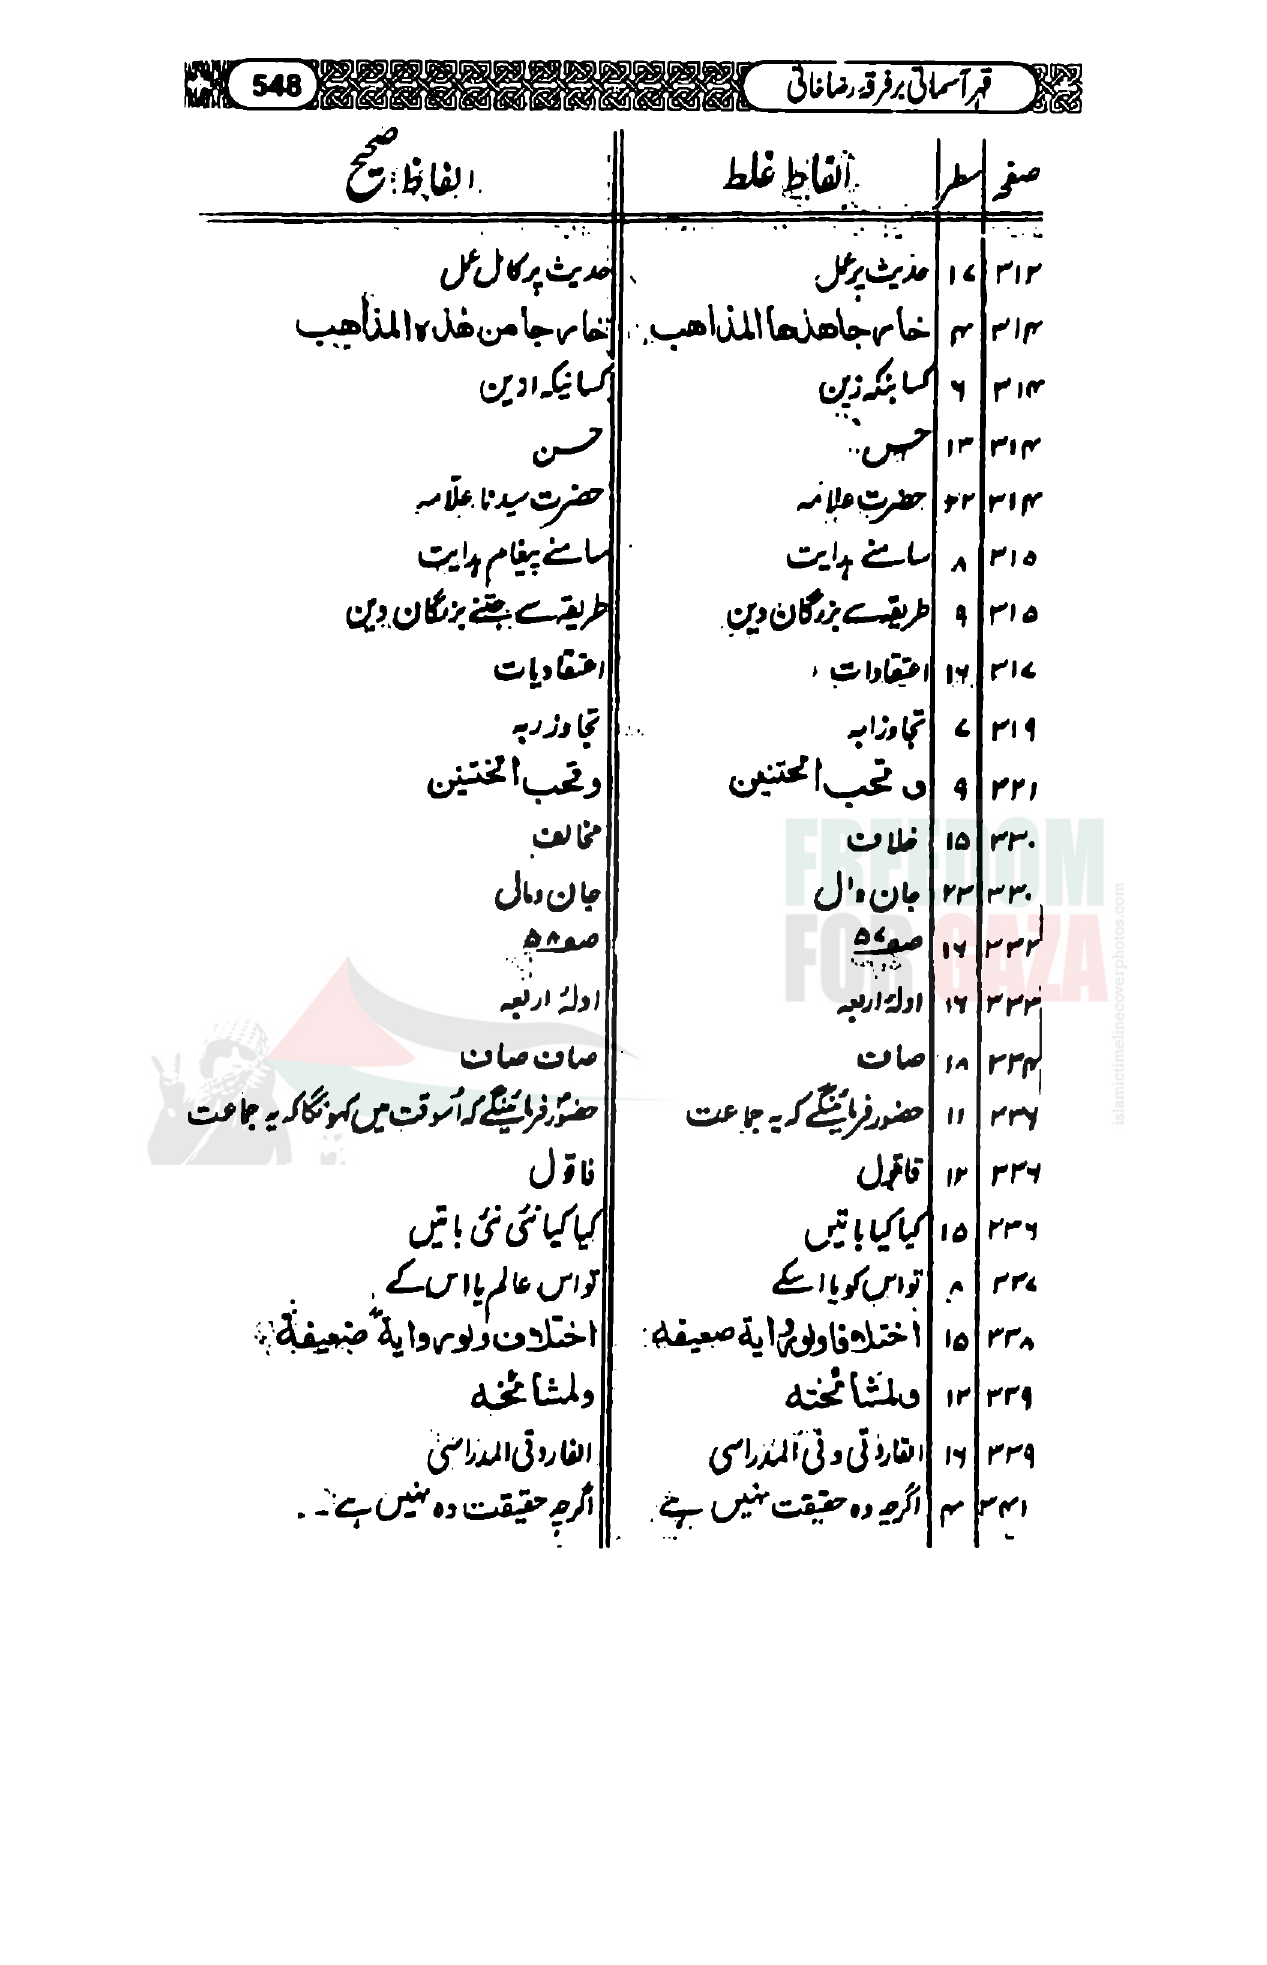 قہر آسمانی بر فرقہ رضاخانی 548
صفحہ سطر الفاظ غلط الفاظ صحیح
۳۱۲ ۱۷ حدیث پر عمل حدیث پر کامل عمل
۳۱۴ ۴ خارجا ھذھا المذاھب خارجا من ھذہ المذاھب
۳۱۴ ۶ کسا بنکہ زین کسانیکہ ادین
۳۱۴ ۱۳ حسن
۳۱۴ ۲۲ حضرت علامہ حضرت سیدنا علّامہ
۳۱۵ ۸ سامنے ہدایت سامنے پیغام ہدایت
۳۱۵ ۹ طریقہ سے بزرگان دین طریقہ سے جتنے بزرگان دین
۳۱۷ ۱۶ اعتقادات اعتقادیات
۳۱۹ ۷ تجاوزابہ تجاوزربہ
۳۲۱ ۹ و تحب الختنین وتحب الختنین
۳۳۰ ۱۵ خلاف مخالف
۳۳۰ ۲۳ جان و ال جان ومالی
۳۳۲ ۱۶ صہ ۵۷ صہ ۵۸
۳۳۳ ۱۶ ادلۂ اربعہ ادلۂ اربعہ
۳۳۴ ۱۸ صاف صاف صاف
۳۳۶ ۱۱ حضور فرمائینگے کہ یہ جماعت حضورؐ فرمائینگے کہ اُسوقت میں کہونگا کہ یہ جماعت
۳۳۶ ۱۲ قاقول فاقول
۳۳۶ ۱۵ کیا کیا باتیں کیا کیا نئی نئی باتیں
۳۳۷ ۸ تو اس کو یا اسکے تو اس عالم یا اس کے
۳۳۸ ۱۵ اختلافا ولوروایة صعیفہ اختلاف ولوروایة ضعیفة
۳۳۹ ۱۲ ولمشائختہ ولمشائخہ
۳۳۹ ۱۶ الفاردتی وفی المدراسی الفاروقی المدراسی
۳۴۱ ۴ اگرچہ وہ حقیقت نہیں ہے اگرچہ حقیقت وہ نہیں ہے۔
FREEDOM
FOR GAZA
islamictimelinecoverphotos.com